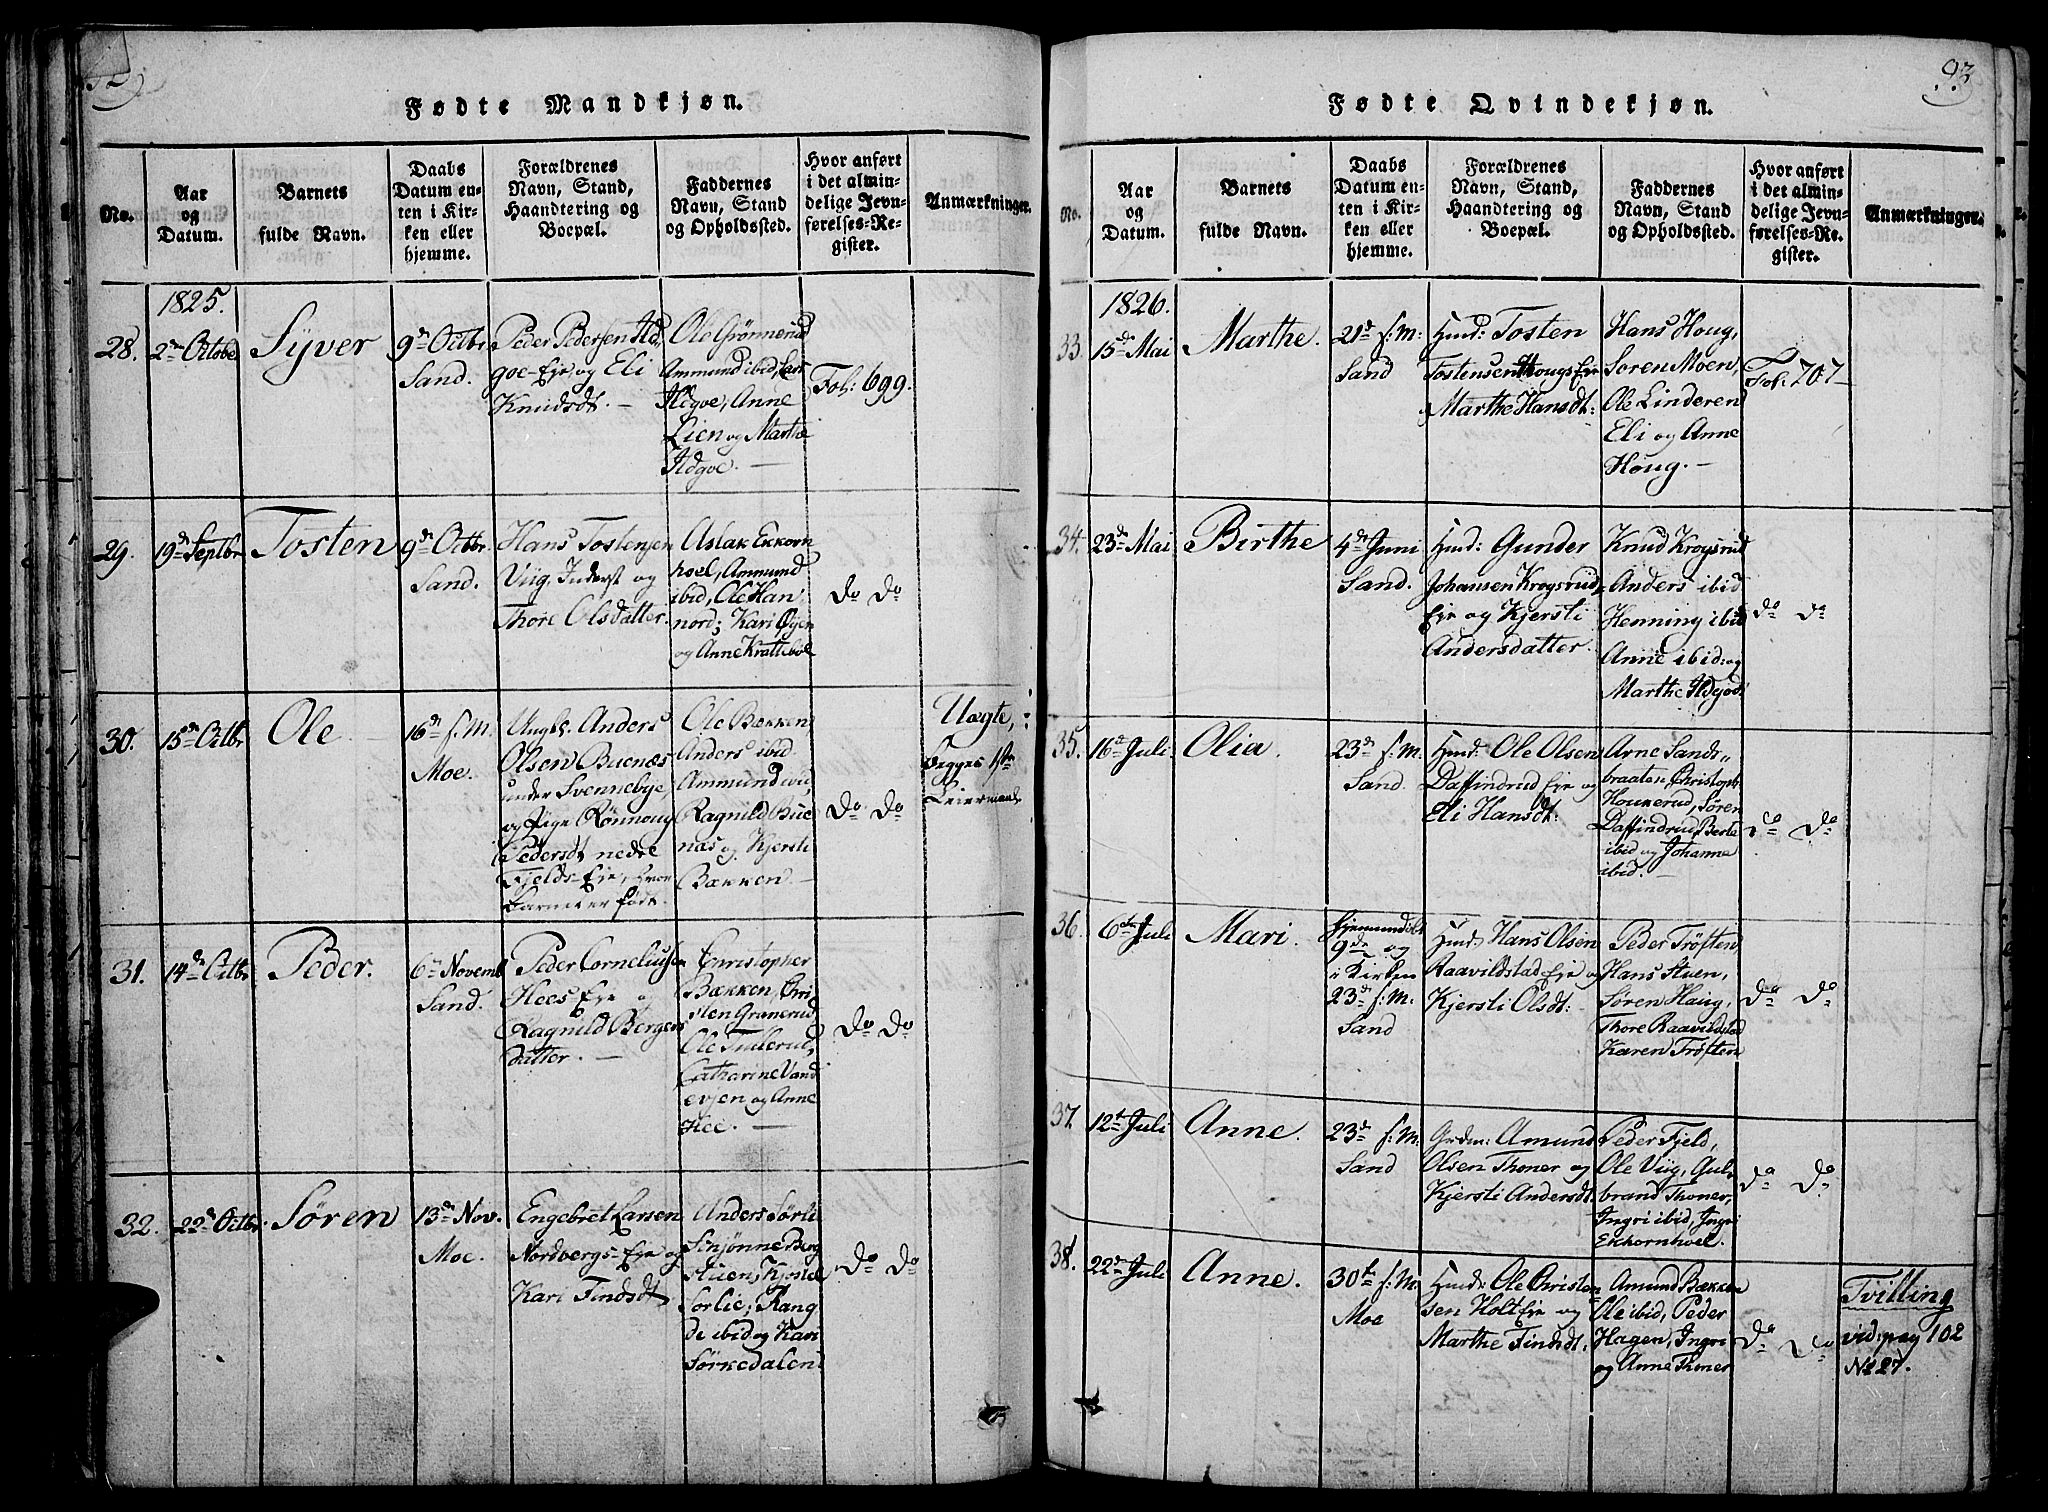 Fødte Mandkjøn.
No.
Aar
og
Datum.
Barnets
fulde Navn.
Daabs
Datum en-
ten i Kir-
ken eller
hjemme.
Forældrenes
Navn, Stand,
Haandtering og
Boepæl.
Faddernes
Navn, Stand
og Opholdssted.
Hvor anført
i det almin-
delige Jevn-
førelses-Re-
gister.
Anmærkninger.
1825.
28.
2den Octobr
Syver
9de Octbr
Sand.
Peder Pedersen Ild,
goe-Eje og Eli
Knudsdt. —
Ole Grönnerud
Ammund ibid, Lars
Ildgoe, Anne
Lien og Marthe
Ildgoe. —
Fol: 699.
29.
19de Septbr
Tosten
9de Octbr.
Sand.
Hans Tostensen
Viig, Inderst og
Thore Olsdatter.
Aslak Ekkorn
hoel, Ammund
ibid, Ole Han
nord; Kari Øyen
og Anne Krattebøe
Do Do
30.
15de Octbr
Ole
16de s. M.
Moe.
Ungk. Anders
Olsen Buenæs
under Svennebye,
og Pige Rönnoug
Pedersdt nedre
Fjelds-Eje, hvor
Barnet er födt.
Ole Bækken
Anders ibid
Ammund ibid,
Ragnild Bue
næs og Kjersti
Bækken —
Do Do
Uægte,
Begges 1ste
Leiermaal
31.
14de Octbr
Peder.
6te Novemb
Sand.
Peder Corneliusen
Hees Eje og
Ragnild Bergers
datter. —
Christopher
Bækken, Chri
sten Granerud
Ole
Catharine Vand
evjen og Anne
Hee. —
Do Do
32.
22de Octbr.
Søren
13de Nov.
Moe.
Engebret Larsen
Nordbergs-Eje og
Kari Findsdt
Anders Sørli
Sinjønne Berg
stuen, Kjostel
Sorlie; Rang
di ibid og Kari
Sørkedalen
Do Do
93
Fødte Qvindekjøn.
No.
Aar
og
Datum.
Barnets
fulde Navn.
Daabs
Datum en-
ten i Kir-
ken eller
hjemme.
Forældrenes
Navn, Stand,
Haandtering og
Boepæl.
Faddernes
Navn, Stand
og Opholdssted.
Hvor anført
i det almin-
delige Jevn-
førelses-Re-
gister.
Anmærkninger.
1826.
33.
15de Mai
Marthe.
21de s: M:
Sand
Huusd: Tosten
Tostensen Hougs Eje
Marthe Hansdt:
Hans Houg,
Soren Moen,
Ole Linderen
Eli og Anne
Houg. —
Fol. 707—
34.
23de Mai
Birthe
4de Juni
Sand.
Huusd: Gunder
Johansen Krogsrud,
Eje og Kjersti
Andersdatter.
Knud Krogsrud
Anders ibid
Henning ibid
Anne ibid: og
Marthe Ildejod.
Do Do
35.
16de Juli.
Olia.
23de s: M.
Sand.
Huusd: Ole Olsen
Daffindrud Eje og
Eli Hansdt:
Arne Sands-
braaten, Christoph
Houkerud, Sören
Daffindrud, Berte
ibid og Johanne
ibid. —
Do Do
36.
6te Juli
Mari.
hjemmedöbt
9de og
i Kirken
23de s: M.
Sand
Huusd: Hans Olsen
Raavildstad Eje og
Kjersti Olsdt:
Peder Tröften,
Hans Stuen,
Sören Haug,
Thore Raavildstad
Karen Tröften
Do Do
37.
12te Juli
Anne.
23de s: M.
Sand
Grdm: Amund
Olsen Thoner og
Kjersti Andersdt.
Peder Fjeld,
Ole Viig, Gul-
brand Thoner,
Ingri ibid, Ingri
Eichornhoel.
Do Do
38.
22de Juli
Anne.
30te s: M
Moe
Huusd: Ole Christen
sen Holt Eje og
Marthe Findsdt.
Amund Bækken
Ole ibid, Peder
Hagen, Ingri
og Anne Thoner
Do Do
Tvilling
vid: pag 102
No 27.